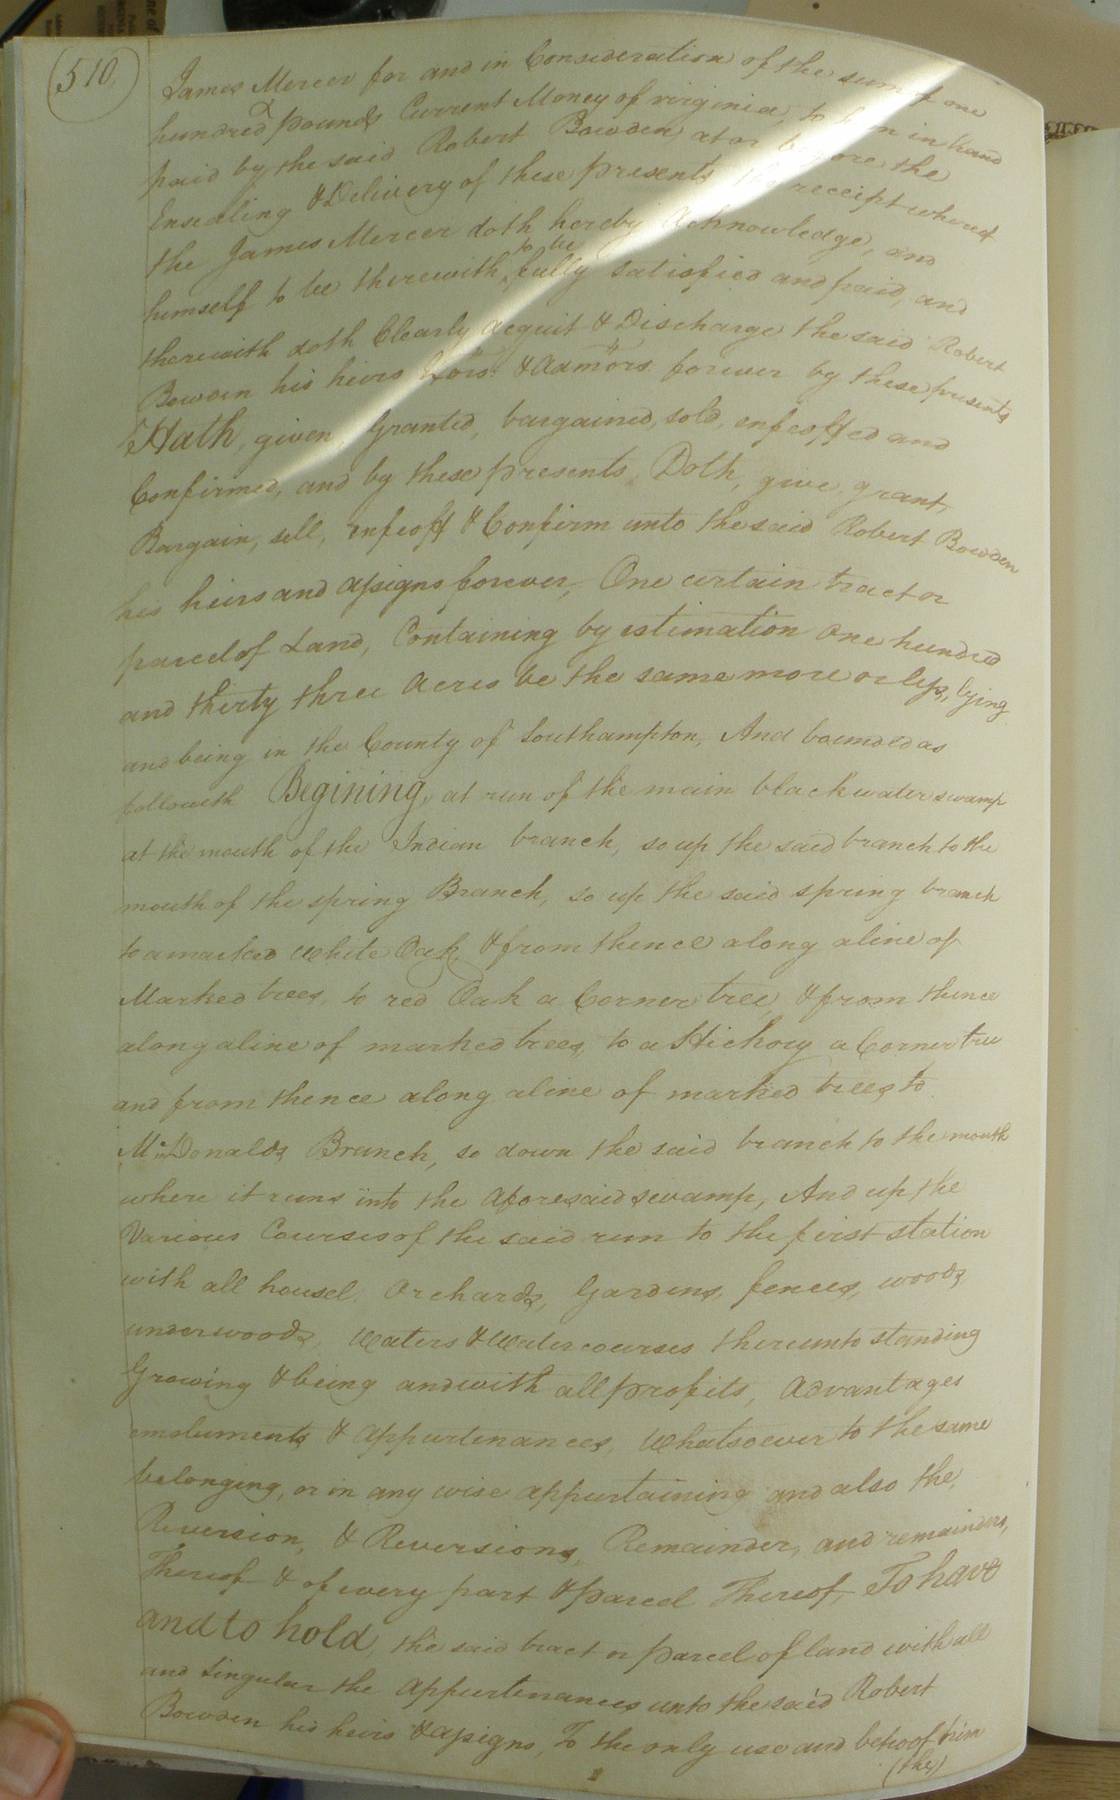 510
James Mercer for and in Consideration of the sum of one
hundred pounds Current Money of virginia, to him in hand
paid by the said Robert Bowden at or before the
Ensealing & Delivery of these presents the receipt whereof
the James Mercer doth hereby Acknowledge, and
himself to be therewith to be fully satisfied and paid, and
therewith doth Clearly acquit & Discharge the said Robert
Bowden his heirs Exors & Admors forever by these presents
Hath, given, Granted, bargained, sold, enfeoffed and
Confirmed, and by these presents Doth, give, grant,
Bargain, sell, enfeoff & Confirm unto the said Robert Bowden
his heirs and assigns forever, One certain tract or
parcel of Land, Containing by estimation one hundred
and thirty three Acres be the same more or less, lying
and being in the County of Southampton, And bounded as
followith Begining, at run of the main blackwater swamp
at the mouth of the Indian branch, so up the said branch to the
mouth of the spring Branch, so up the said spring branch
to a marked White Oak, & from thence along a line of
Marked trees, to red Oak a Corner tree, & from thence
along a line of marked trees, to a Hickory a Corner tree
and from thence along a line of marked trees to
McDonalds Branch, so down the said branch to the mouth
where it runs into the aforesaid swamp, And up the
Various Courses of the said run to the first station
with all housel, Orchards, Gardens, fences, woods,
underwoods, Waters & Water courses thereunto standing
Growing & being and with all profits, Advantages
emoluments & appurtenances, Whatsoever to the same
belonging, or in any wise appurtaining and also the,
Reversion, & Reversions, Remainder, and remainders,
Thereof & of every part & parcel Thereof, To have
and to hold, the said tract or parcel of land with all
and Singular the Appurtenances unto the said Robert
Bowden his heirs & assigns, To the only use and behoof him
(the)